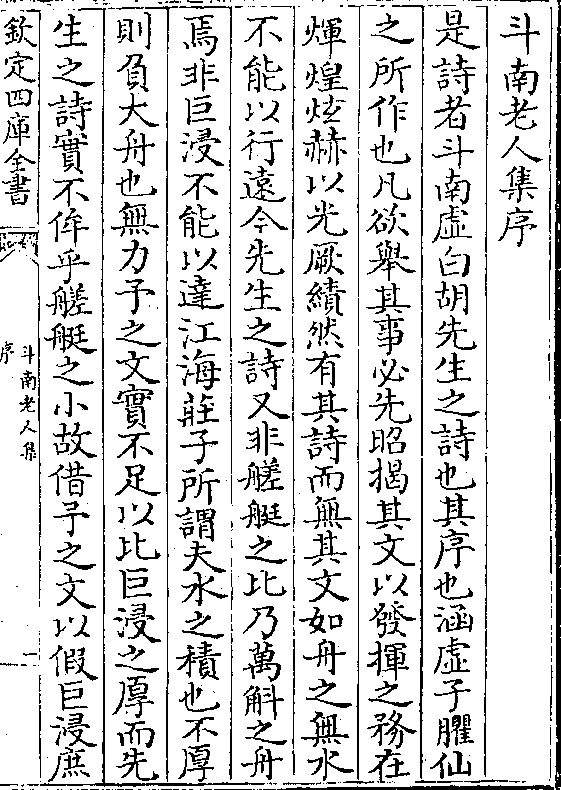 斗南老人集序
是詩者斗南虛白胡先生之詩也其序也涵虛子臞仙
之所作也凡欲舉其事必先昭揭其文以發揮之務在
煇煌炫赫以光厥績然有其詩而無其文如舟之無水
不能以行遠今先生之詩又非艖艇之比乃萬斛之舟
焉非巨浸不能以達江海莊子所謂夫水之積也不厚
則負大舟也無力予之文實不足以比巨浸之厚而先
生之詩實不侔乎艖艇之小故借予之文以假巨浸庶
欽定四庫全書
斗南老人集
序
一